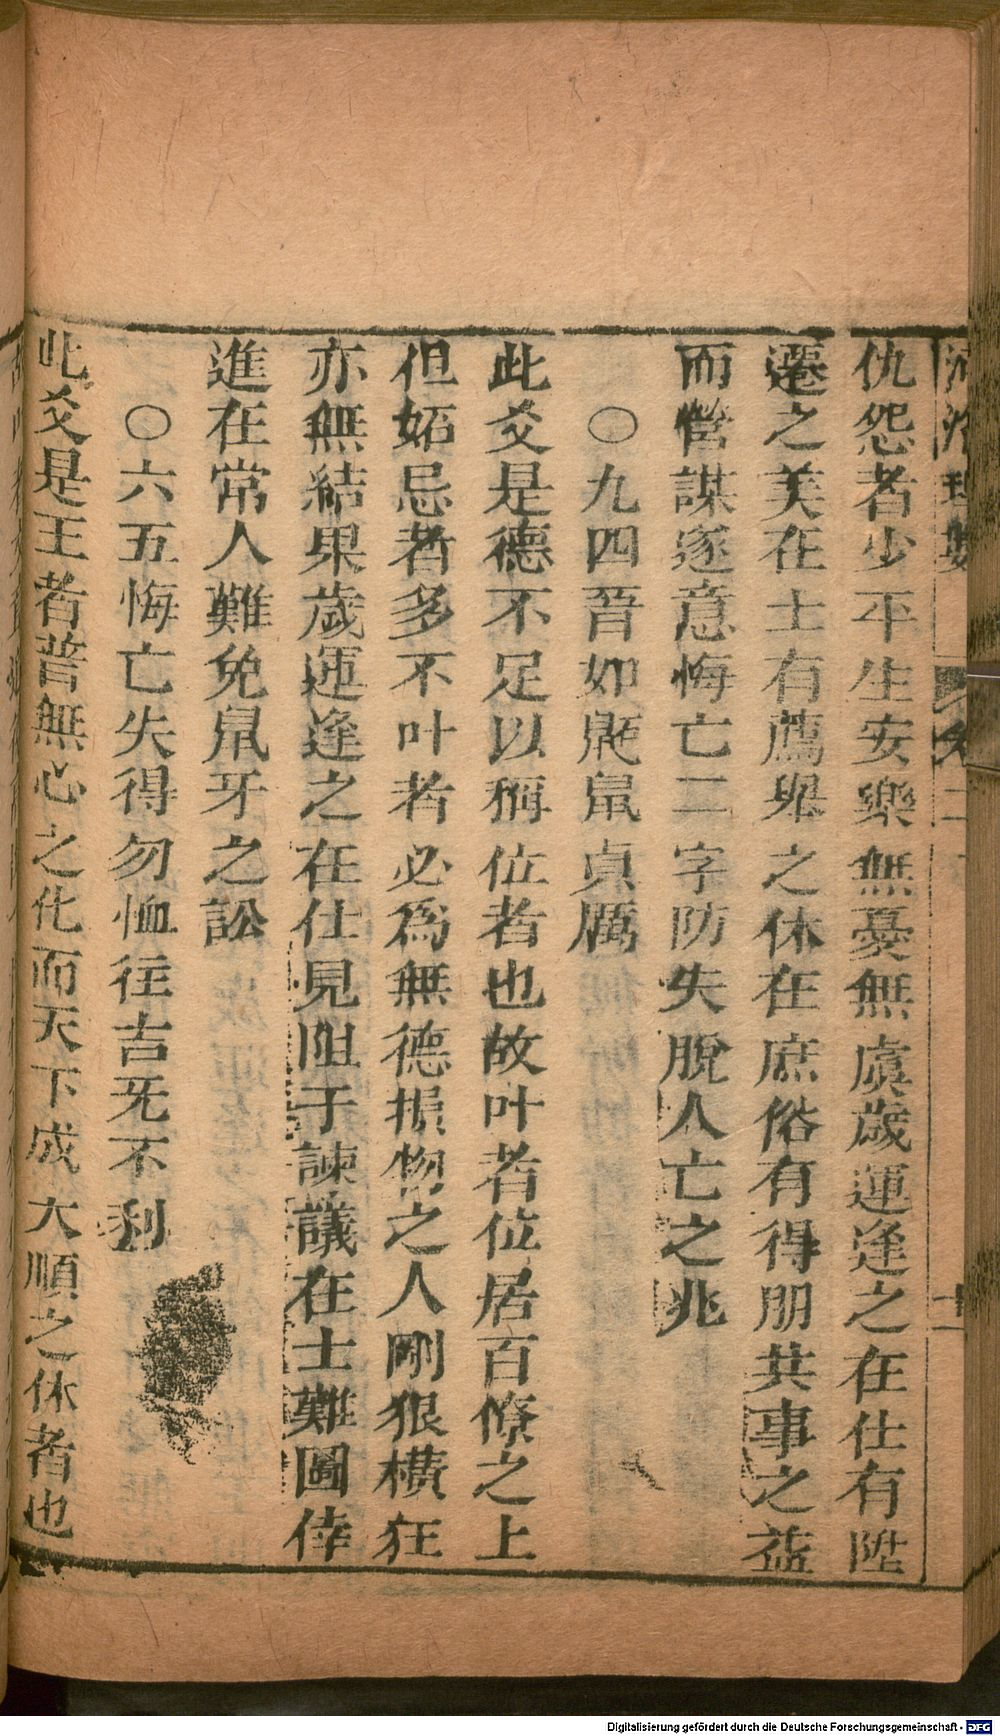 仇怨者少平生安樂無憂無虞歲運逢之在仕有陞
遷之美在士有薦舉之休在庶俗有得朋共事之益
而營謀遂意悔亡二字防失脫人亡之兆
○九四晉如鼫鼠貞厲
此爻是德不足以稱位者也故叶者位居百僚之上
但妬忌者多不叶者必為無德損物之人剛狠橫狂
亦無結果歲運逢之在仕見阻于諫議在士難圖倖
進在常人難免鼠牙之訟
○六五悔亡失得勿恤往吉旡不利
此爻是王者普無心之化而天下成大順之休者也
Digitalisierung gefördert durch die Deutsche Forschungsgemeinschaft - DFG